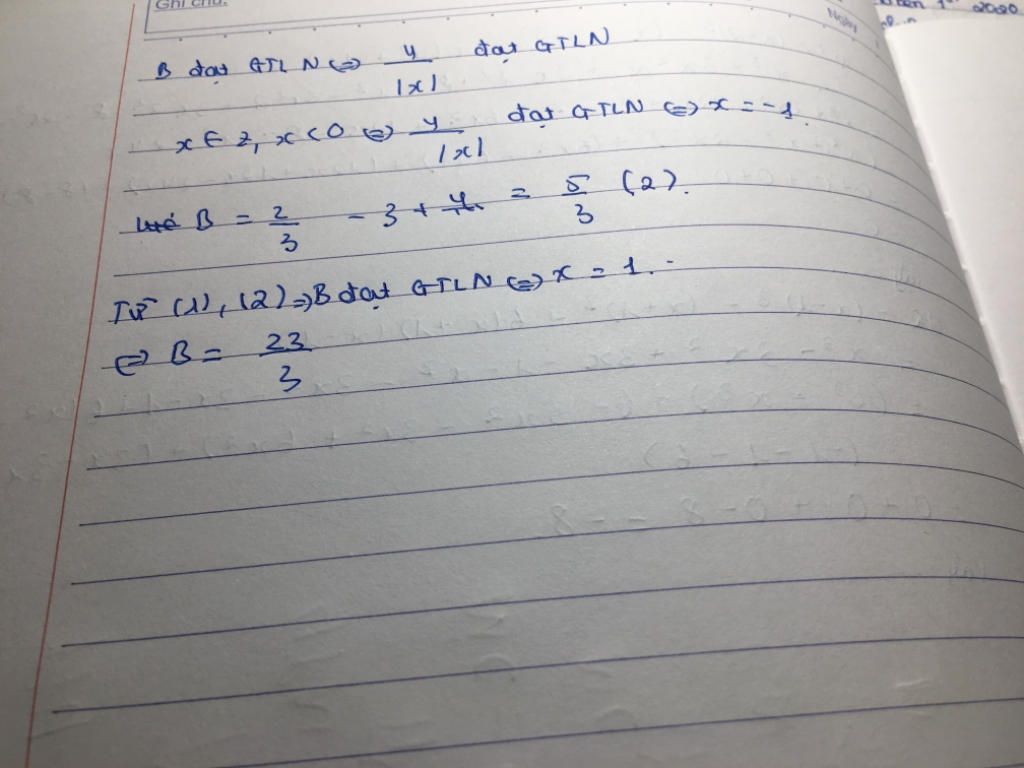 Ghi chú:
Ngày
2020
B đạt GTLN <=> 4/|x| đạt GTLN
x ∈ Z, x < 0 <=> 4/|x| đạt GTLN <=> x = -1.
B = 2/3 - 3 + 4 = 5/3 (2).
Từ (1), (2) => B đạt GTLN <=> x = 1.
<=> B = 23/3